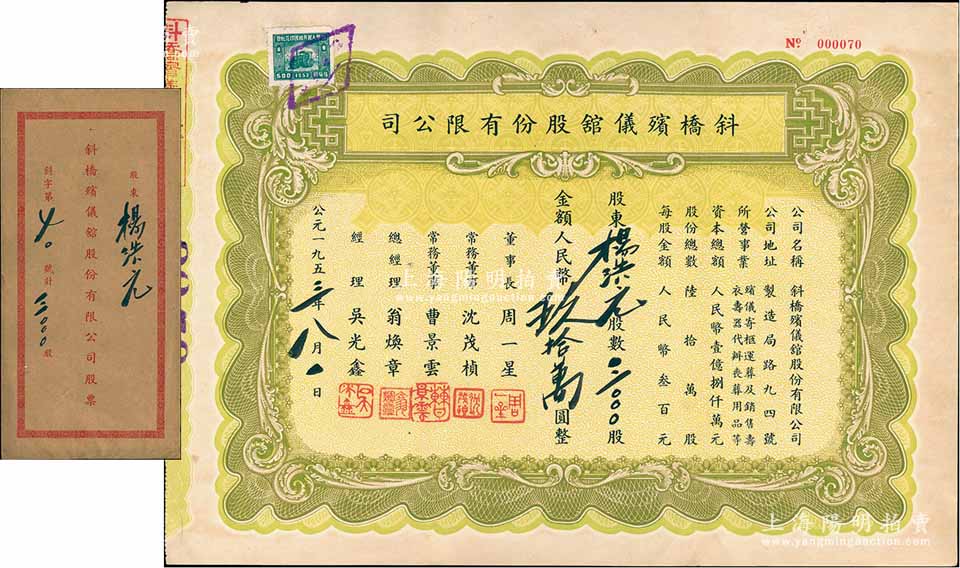 斜橋殯儀舘股份有限公司股票
股東 楊洪元
刻字第 70 號計 三000 股
Nº 000070
斜橋殯儀舘股份有限公司
公司名稱 斜橋殯儀舘股份有限公司
公司地址 製造局路九四號
所營事業 殯儀寄柩運葬及銷售壽衣壽器代辦喪葬用品等
資本總額 人民幣壹億捌仟萬元
股份總數 陸拾萬股
每股金額 人民幣叁百元
股東 楊洪元 股數 三000 股
金額人民幣 玖拾萬 圓整
董事長 周一星
常務董事 沈茂楨
常務董事 曹景雲
總經理 翁煥章
經理 吳光鑫
公元一九五三年八月一日
上海陽明拍賣
上海陽明拍賣
www.yangmingauction.com